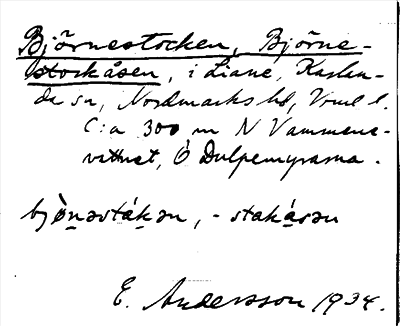 Björnestocken, Björne-
stockåsen, i Liane, Karlan-
da sn, Nordmarks hd, Vrml l.
C:a 300 m N Vammens-
vattnet, Ö Dulpemyrarna.
bjö̀ṇəstáḳən, - stakásən
E. Andersson 1934.